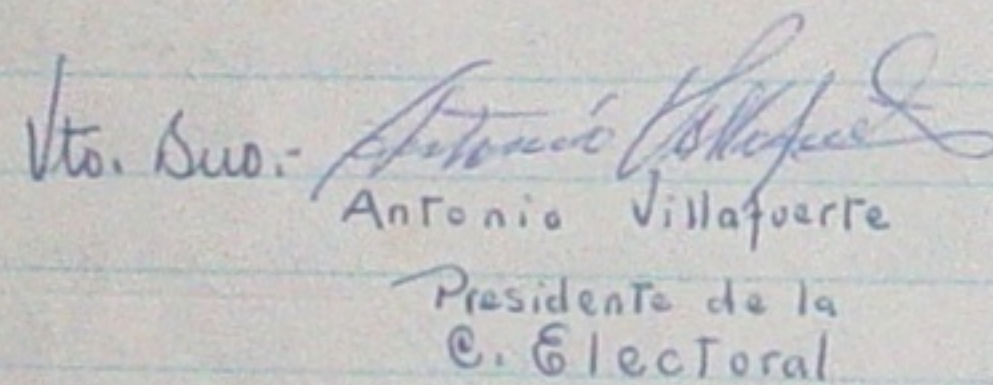 Vto. Buo.- Antonio Villafuerte
Antonio Villafuerte
Presidente de la
C. Electoral